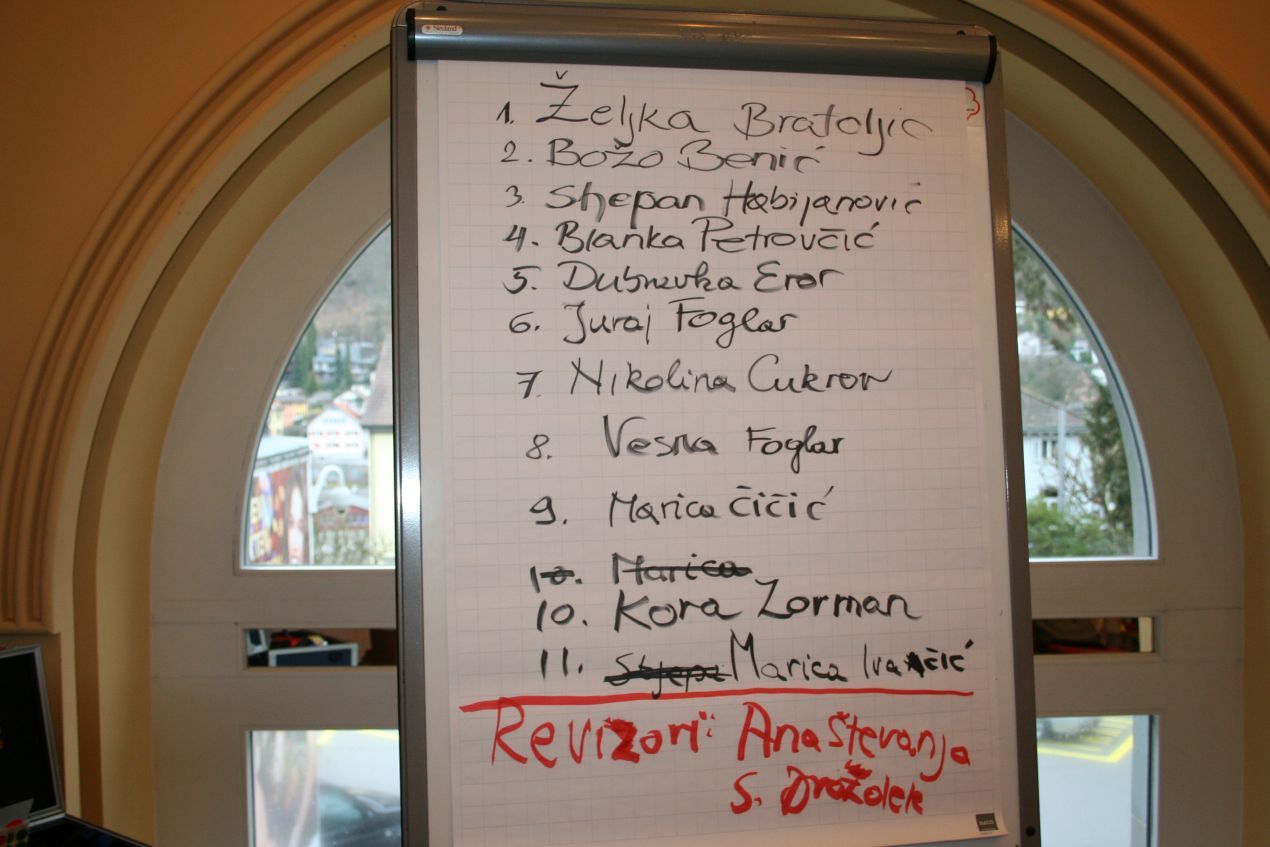 Neuland
1. Željka Bratoljić
2. Božo Benić
3. Stjepan Habijanović
4. Blanka Petrovčić
5. Dubravka Eror
6. Juraj Foglar
7. Nikolina Cukrov
8. Vesna Foglar
9. Marica Čičić
10. Marica
10. Kora Zorman
11. Stjepa Marica Ivančić
Revizori: Ana Števanja
S. Drožolek